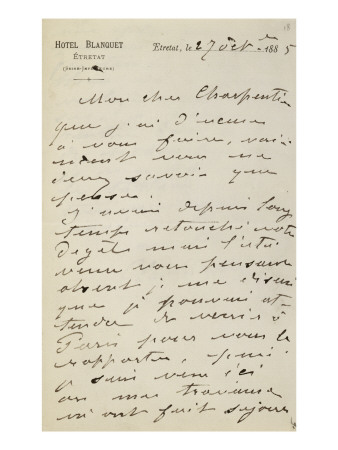 HOTEL BLANQUET
ÉTRETAT
(SEINE-INFÉRIEURE)
Étretat, le 27 Oct. 1885
Mon cher Charpentier
que j'ai d'
à vous faire, vrai-
ment vous
savoir que
penser.
J'avais depuis long
temps retouché votre
dégels mais l'été
venu vous pensant
absent je me disais
que je pouvais at-
tendre de venir à
Paris pour vous le
rapporter, puis
je suis venu ici
où mes travaux
m'ont fait séjourner